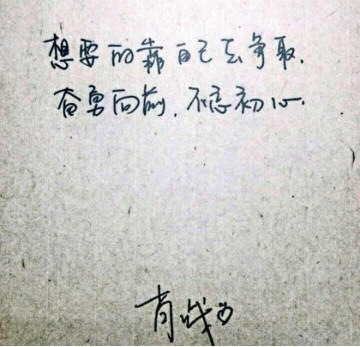 想要的靠自己去争取.
奋勇向前,不忘初心.
肖战